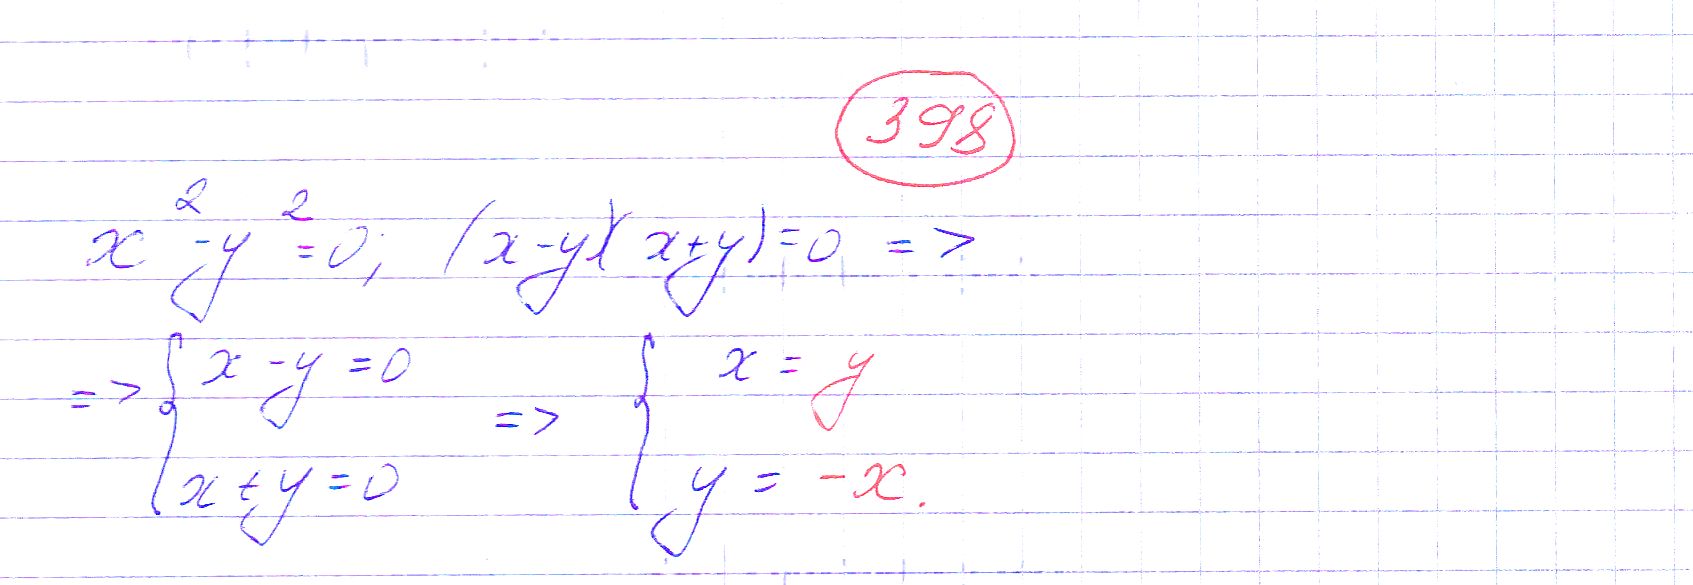 398
x² - y² = 0; (x-y)(x+y) = 0 =>
=> { x - y = 0 => { x = y
x + y = 0 y = -x.